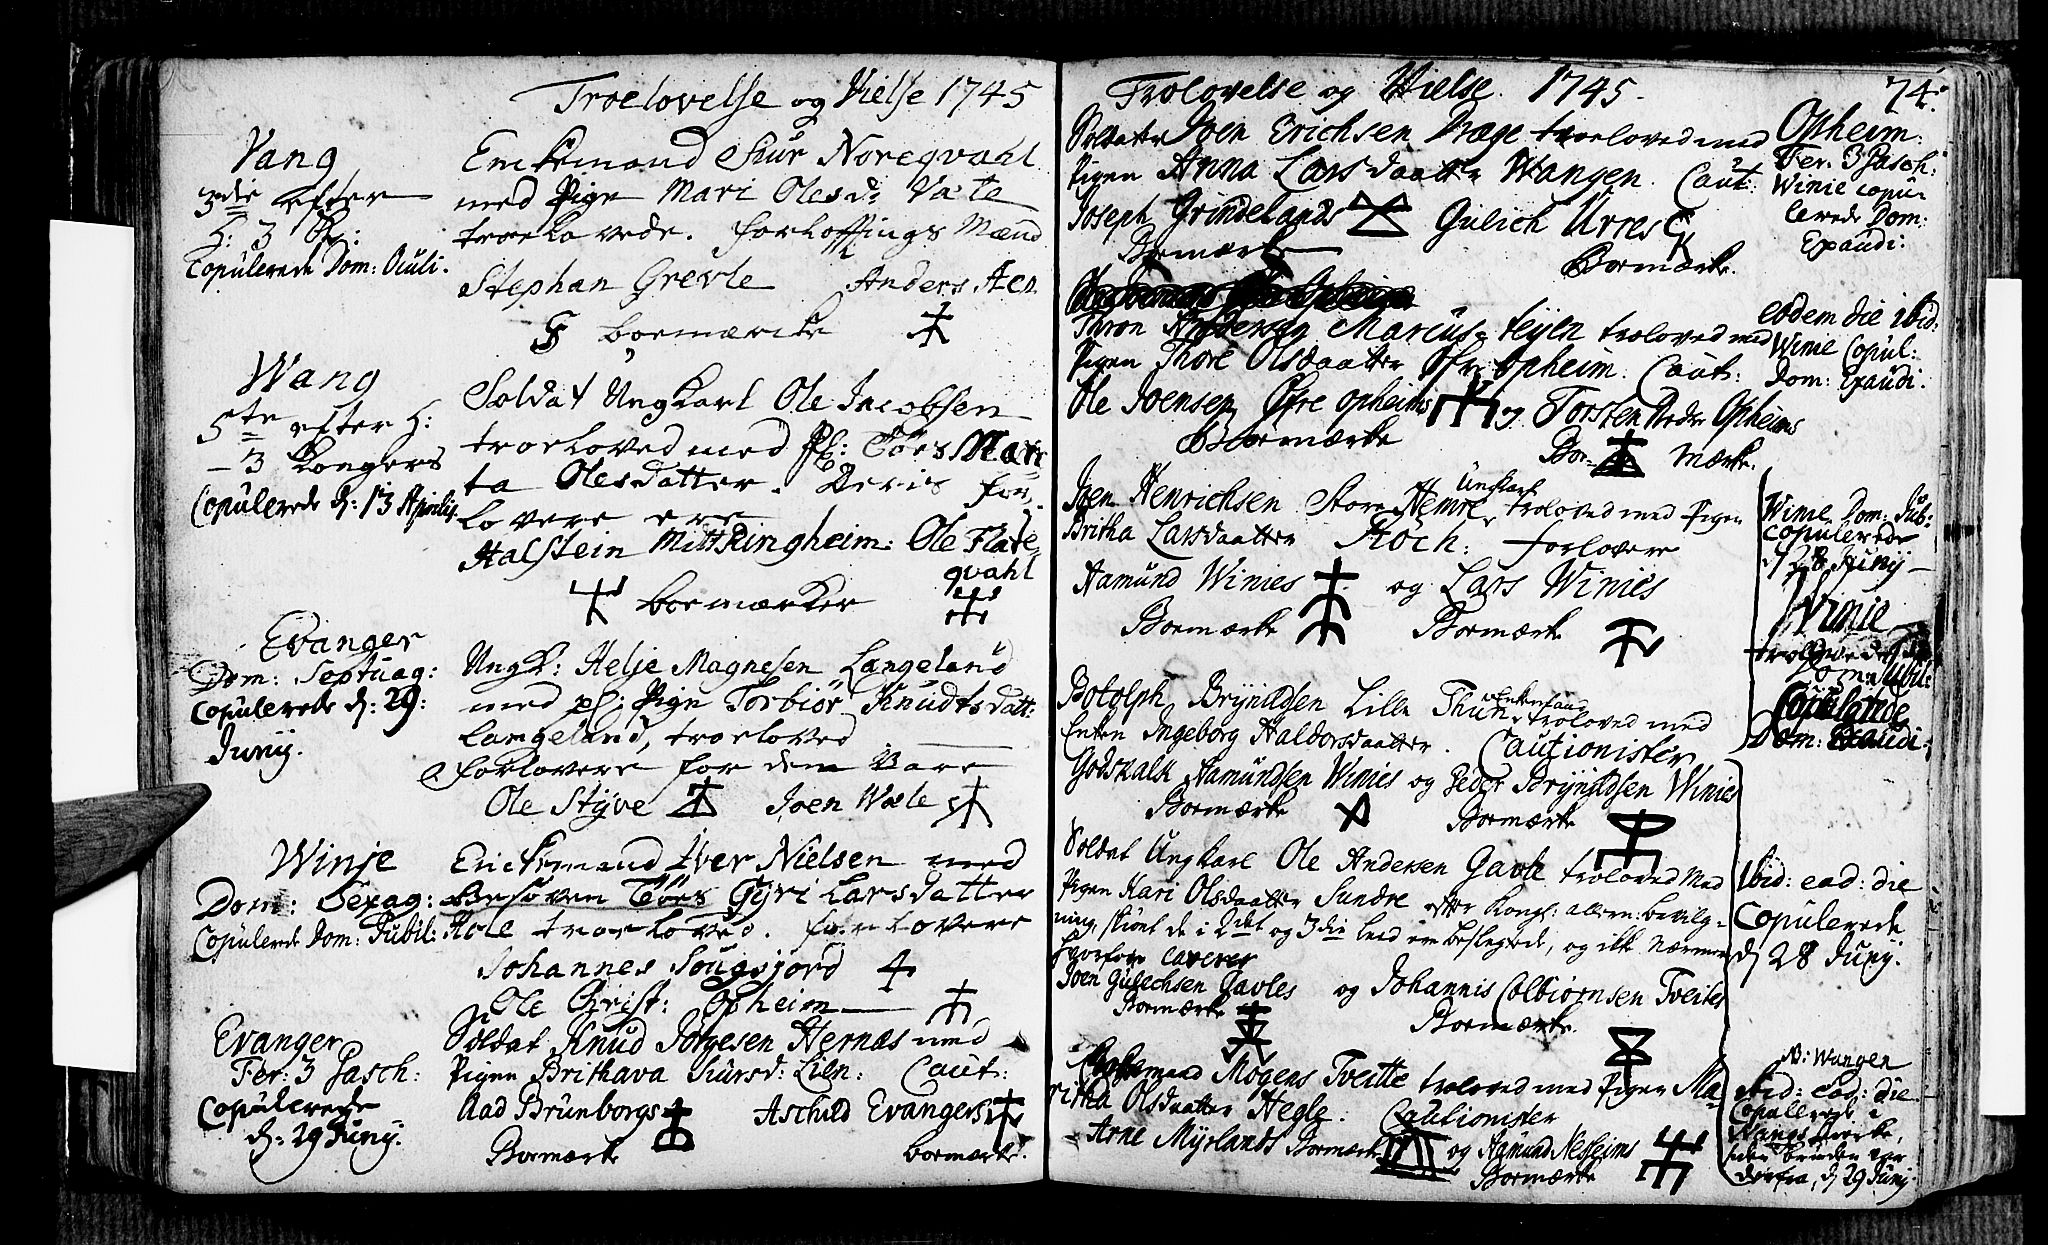 Troelovelse og Vielse 1745
Vang
3de efter
H: 3 K:
Copulerede Dom: Oculi.
Enkemand Siur Noreqvahl
med Pige Mari Olesd: Vate
troelovede. Forloffings Mænd
Stephan Grevle Anders
boemærcke
Wang
5te efter H:
3 Kongers
Copulerede d: 13 Aprilis.
Soldat Ungkarl Ole Jacobsen
troeloved med P: Tøes Mar
ta Olesdatter. Deris for
lovere ere
Halstein Mitt Ringheim: Ole Flate
qvahl
boemærker
Evanger
Dom: Septuag:
Copulerede d: 29:
Junij.
Ungk: Helje Magnesen Langeland
med p: Pige Torbiør Knudtsdatt:
Langeland, troeloved
forlovere for dem vare
Ole Styve Joen Wæle
Winje
Dom: Sexag:
Copulerede Dom: Jubil:
Enckemand Iver Nielsen med
Besøven Tøes Gyri Larsdatter
troeloved. forlovere
Johannes Sougsjord
Ole Christ: Opheim
Evanger
Fer: 3 Pasch:
Copulerede
d: 29 Junij.
Soldat Knud Jørgesen Hernæs med
Pigen Brithava Siursd: Lien: Caut:
Aad Brunborgs Aschild Evangers
Boemærke boemærke.
Trolovelse og Vielse. 1745. 74.
Soldatt Joen Erichsen Dræge troeloved med
Pigen Anna Larsdaatter Wangen. Caut:
Joseph Grindelands Gulich Urres
Boemærke Boemærke.
Opheim:
Fer. 3 Pasch:
Winie copu-
lerede Dom:
Exaudi.
Thron Andersen Marcus-teyen troloved med
Pigen Thore Olsdaatter Øfre Opheim. Caut:
Ole Joensen Øfre Opheims og Torsten Nedre Opheims
Boemærke Boe- mærke.
eodem die ibid:
Winie Copul:
Dom: Exaudi.
Ungkarl
Joen Henrichsen Store Hemre troloved med Pigen
Britha Larsdaatter Røch: Forlovere
Aamund Winies og Lars Winies
Boemærke Boemærke
Winie Dom: Jub:
Copulerede
d 28 Junij
Winie
Dom: Jubil:
Copulerede
Dom: Exaudi:
Enkemand
Botolph Brynildsen Lille Thun troloved med
Enken Ingeborg Haldorsdaatter. Cautionister
Godskalk Aamundsen Winies og Peder Brynildsen Winies
Boemærke Boemærke
Soldat Ungkarl Ole Andersen Gavle troloved med
Pigen Kari Olsdaatter Sundre efter Kongl: allern: bevilg-
ning, skiønt de i 2det og 3die leed ere beslegtede, og ikke nærmere
herfore caverer
Joen Gulechsen Gavles og Johannis Colbiornsen Tveites
Boemærke Boemærke.
Ibid: ead: die
Copulerede
d 28 Junij.
Enkemand Mogens Tveitte troloved med Pigen Ma-
ritha Olsdaatter Hegle. Cautionister
Arne Myrlands Boemærke og Aamund Nesheims
Boemærke
N: Wangen
Ibid: Ead: die
Copulerede i
Wangs Kirke,
siden bruden var
derfra, d 29 Junij.